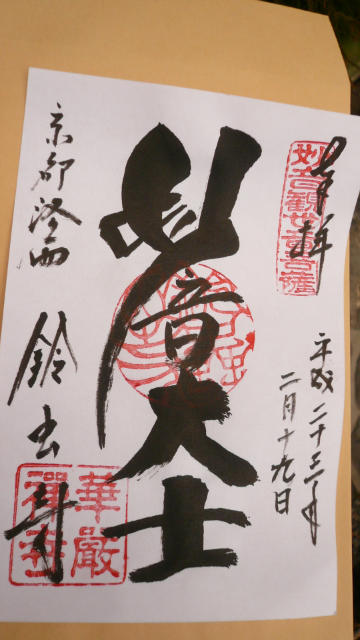 奉拝
妙音観世音菩薩
平成二十三年
二月十九日
妙音大士
京都洛西
鈴虫寺
華厳禅寺